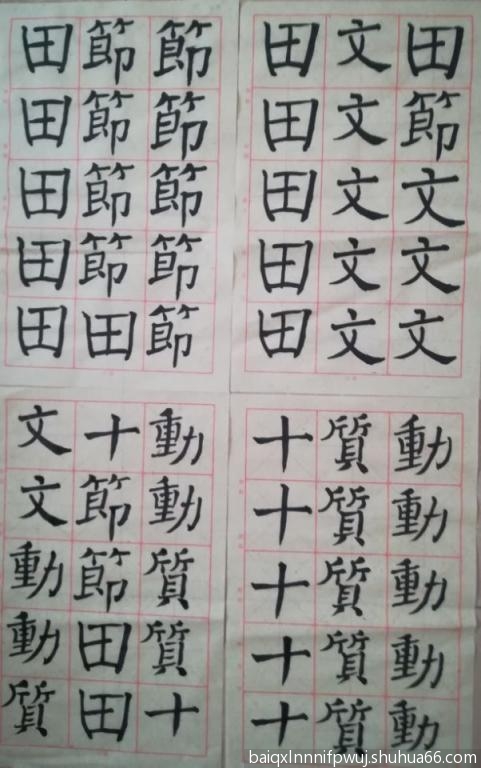 田 節 節
田 節 節
田 節 節
田 節 節
田 田 節
田 文 田
田 文 節
田 文 文
田 文 文
田 文 文
文 十 動
文 節 動
動 節 質
動 田 質
質 田 十
十 質 動
十 質 動
十 質 動
十 質 動
十 質 動
baiqxlnnnifpwuj.shuhua66.com